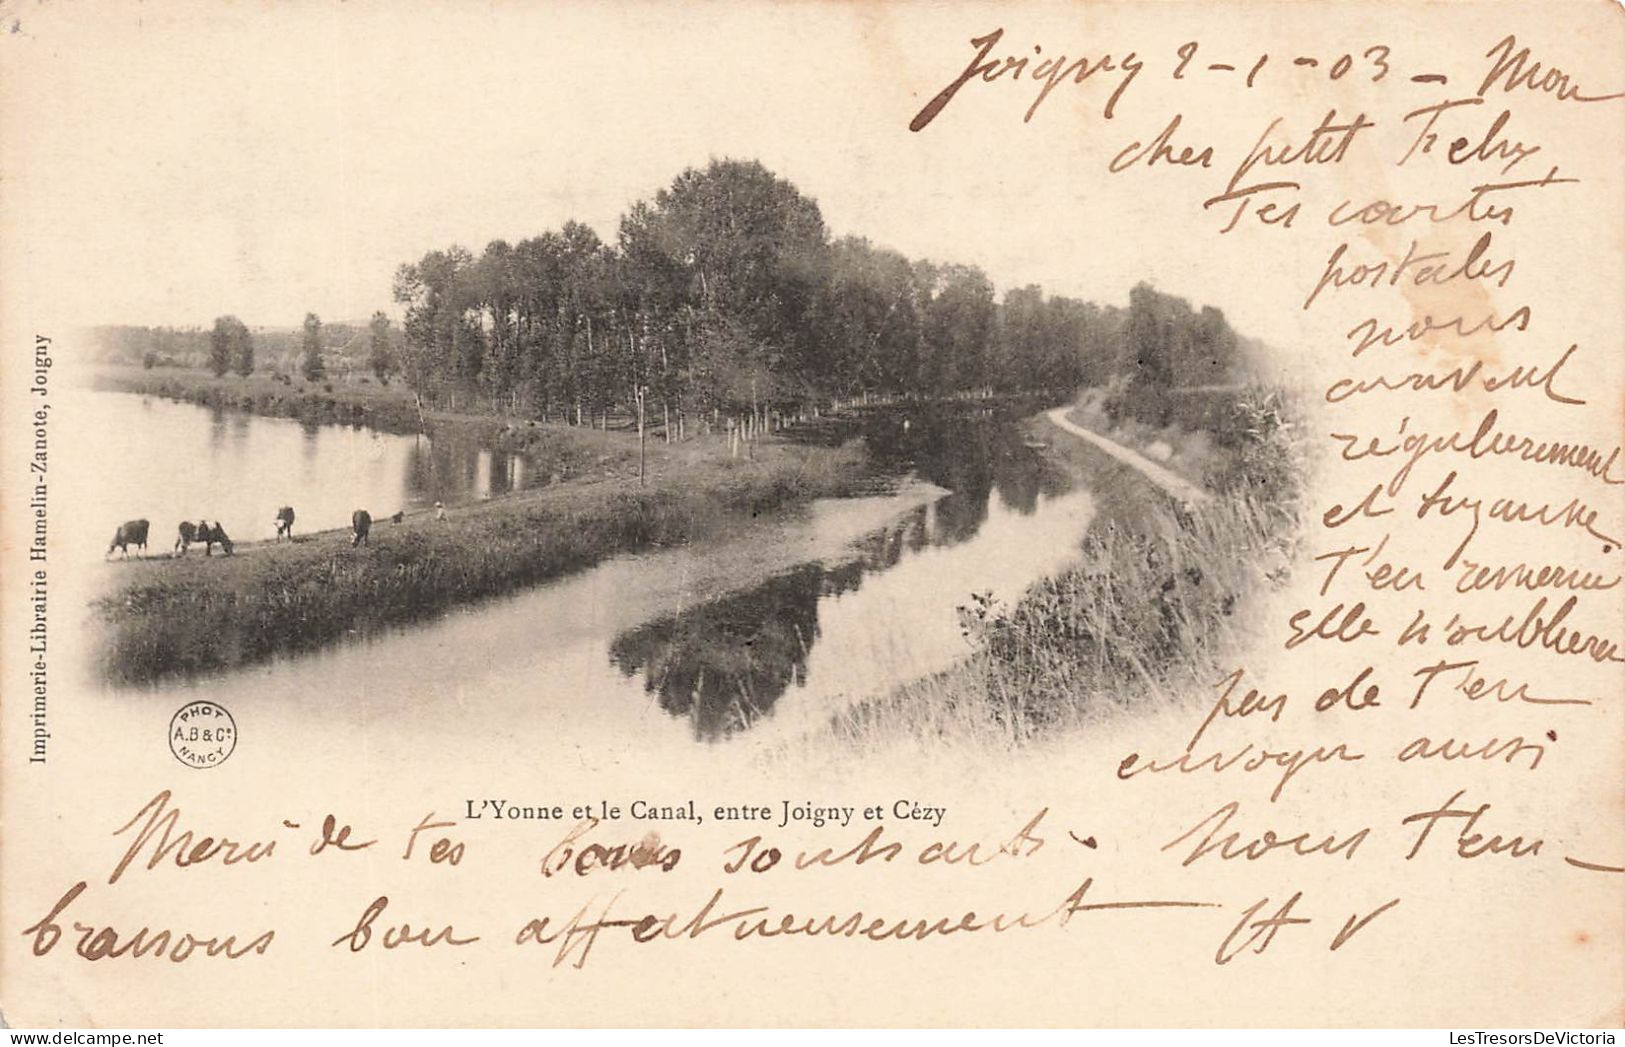 Joigny 2-1-03 - Mon
cher petit
Tes cartes
postales
nous
arrivent
régulièrement
et Suzanne
t'en remercie
Elle n'oubliera
pas de t'en
envoyer aussi
Merci de tes bons souhaits. Nous t'em-
brassons bon affectueusement
Imprimerie-Librairie Hamelin-Zanote, Joigny
PHOT
A.B & Cie
NANCY
L'Yonne et le Canal, entre Joigny et Cézy
LesTresorsDeVictoria